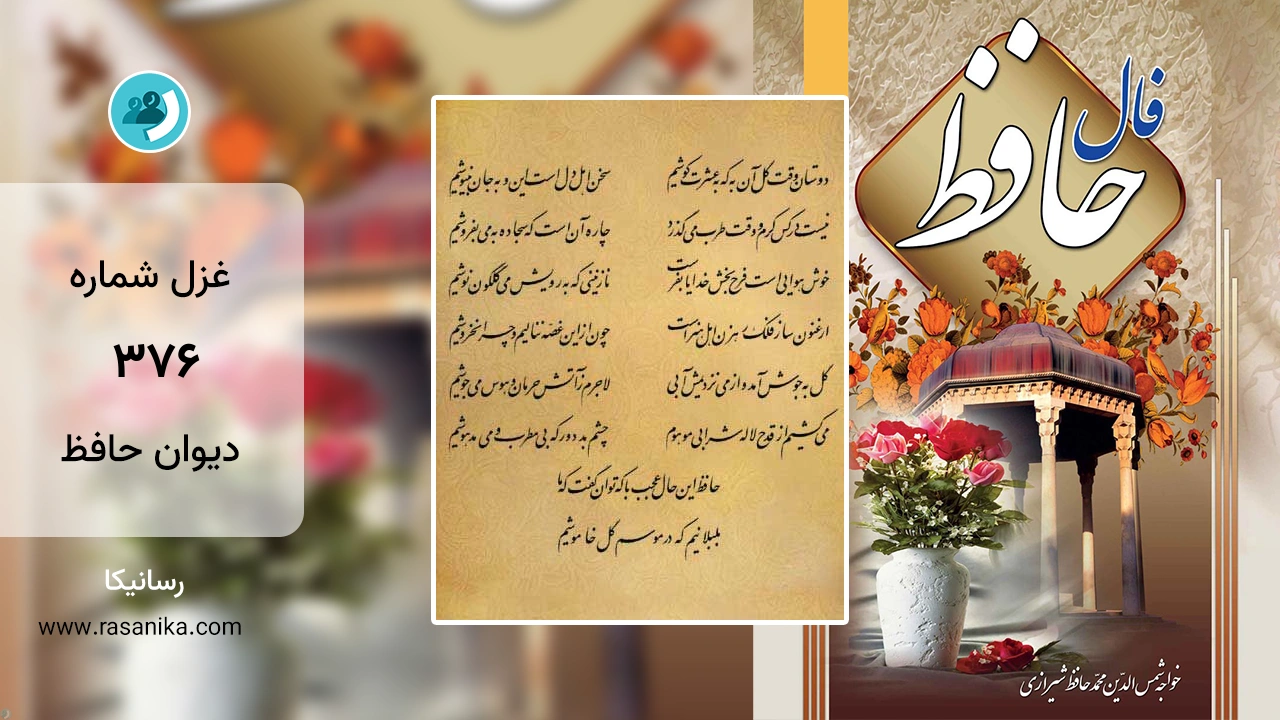 فال
حافظ
دوستان وقت گل آن به که به عشرت کوشیم
سخن اهل دل است این و به جان بنیوشیم
نیست در کس کرم و وقت طرب می‌گذرد
چاره آن است که سجاده به می بفروشیم
خوش هوایی است فرح بخش خدایا بفرست
نازنینی که به رویش می گلگون نوشیم
ارغنون ساز فلک رهزن اهل هنر است
چون از این غصه ننالیم و چرا نخروشیم
گل به جوش آمد و از می نزدیمش آبی
لاجرم ز آتش حرمان و هوس می‌جوشیم
می‌کشیم از قدح لاله شرابی موهوم
چشم بد دور که بی مطرب و می مدهوشیم
حافظ این حال عجب با که توان گفت که ما
بلبلانیم که در موسم گل خاموشیم
غزل شماره
۳۷۶
دیوان حافظ
رسانیکا
www.rasanika.com
خواجه شمس الدّین محمّد حافظ شیرازی